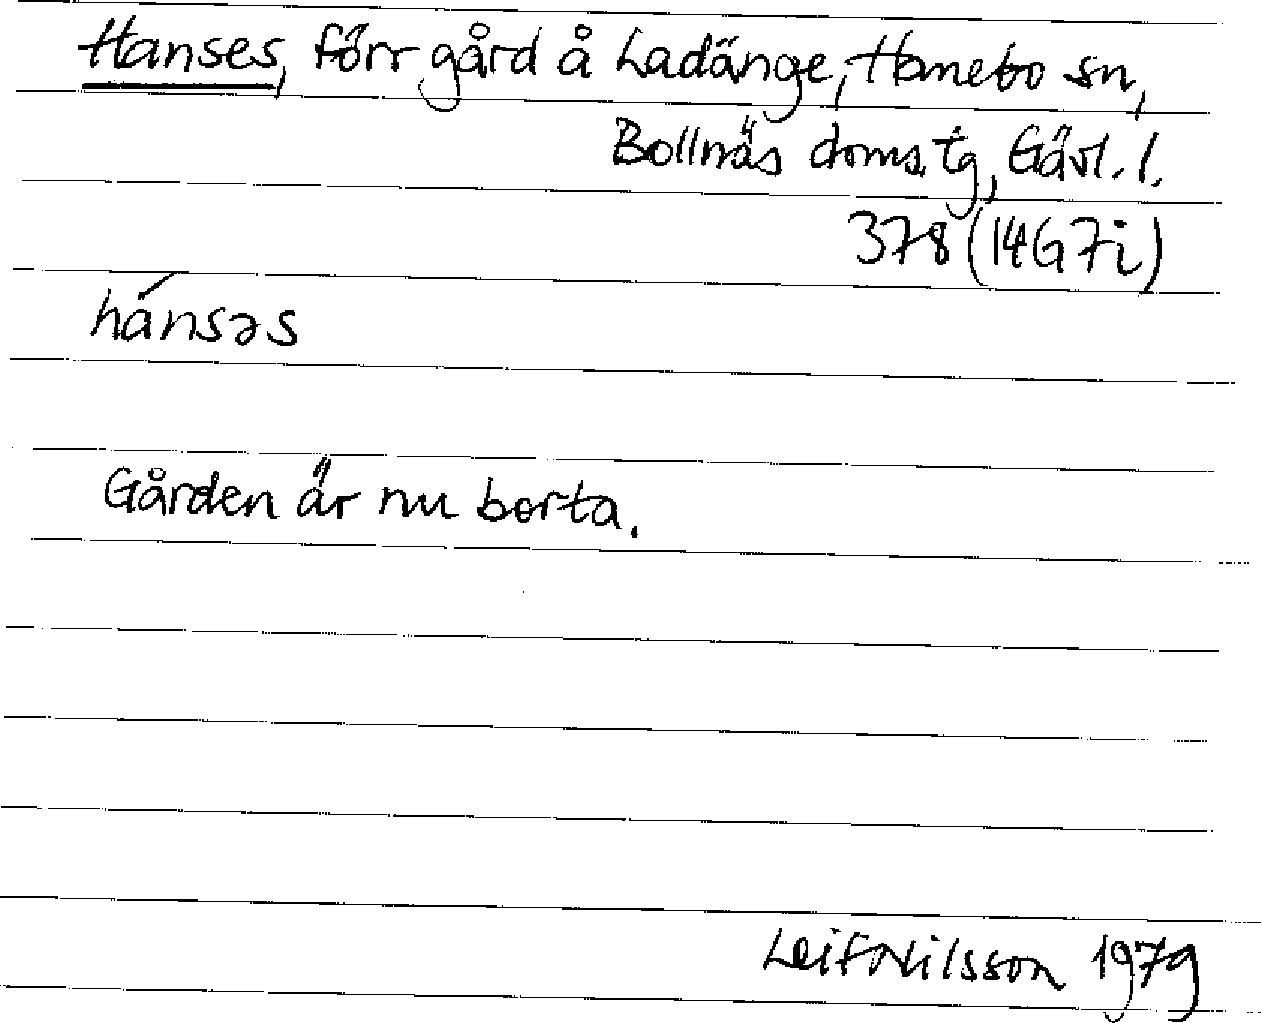 Hanses, förr gård å Ladänge, Hanebo sn,
Bollnäs doms. tg, Gävl. l.
378 (14G7i)
hánsəs
Gården är nu borta.
Leif Nilsson 1979